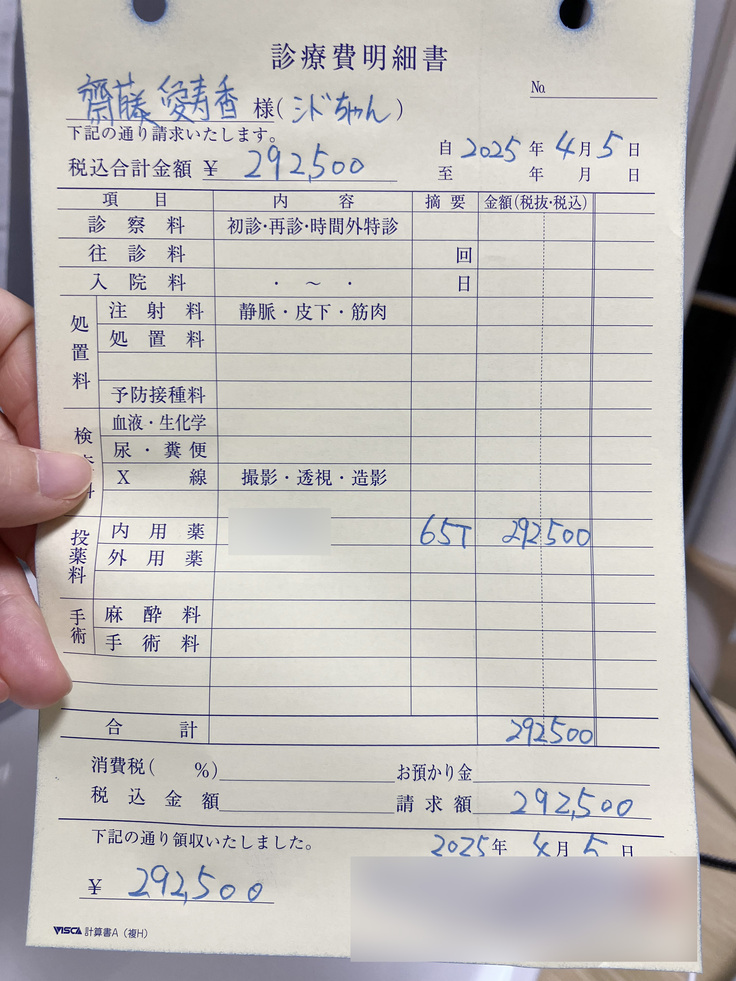 診療費明細書
No.
齋藤 愛寿香 様(シドちゃん)
下記の通り請求いたします。
自 2025 年 4 月 5 日
税込合計金額 ¥ 292,500
至 年 月 日
項目 内容 摘要 金額(税抜・税込)
診察料 初診・再診・時間外特診
往診料 回
入院料 ・ ～ ・ 日
処置料
注射料 静脈・皮下・筋肉
処置料
予防接種料
検
血液・生化学
尿・糞便
X線 撮影・透視・造影
投薬料
内用薬 65T 292500
外用薬
手術
麻酔料
手術料
合計 292500
消費税( %) お預かり金
税込金額 請求額 292,500
下記の通り領収いたしました。 2025年 4月 5日
¥ 292,500
VISCA 計算書A(複H)